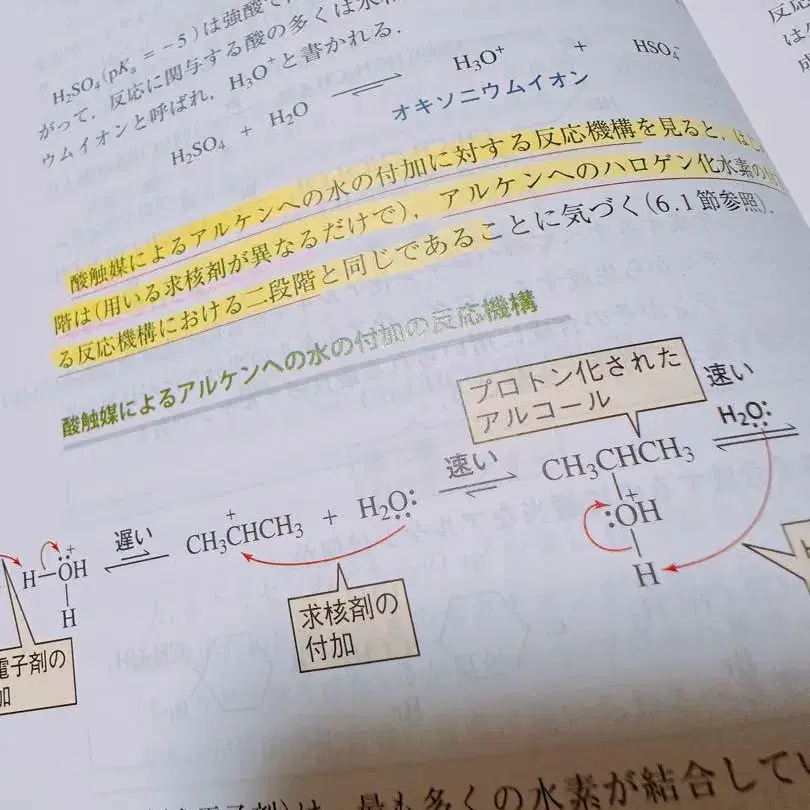 H₂SO₄(pKₐ = −5)は強酸で
がって，反応に関与する酸の多くは水和
ウムイオンと呼ばれ，H₃O⁺と書かれる．
H₂SO₄ + H₂O ⇌ H₃O⁺ + HSO₄⁻
オキソニウムイオン
酸触媒によるアルケンへの水の付加に対する反応機構を見ると，はじ
階は(用いる求核剤が異なるだけで)，アルケンへのハロゲン化水素の
る反応機構における二段階と同じであることに気づく(6.1節参照)．
酸触媒によるアルケンへの水の付加の反応機構
プロトン化された
アルコール
速い
H₂O:
遅い
速い
H—OH
H
CH₃CHCH₃ + H₂O:
CH₃CHCH₃
:OH
H
求核剤の
付加
電子剤の
加
反応
は
成
H
は，最も多くの水素が結合してい